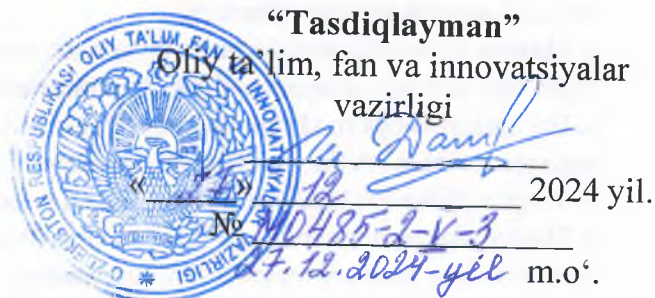 “Tasdiqlayman”
Oliy ta’lim, fan va innovatsiyalar
vazirligi
« » 12 2024 yil.
№ MD485-2-V-3
27.12.2024-yil m.o‘.
O‘ZBEKISTON RESPUBLIKASI OLIY TA’LIM, FAN VA INNOVATSIYALAR VAZIRLIGI